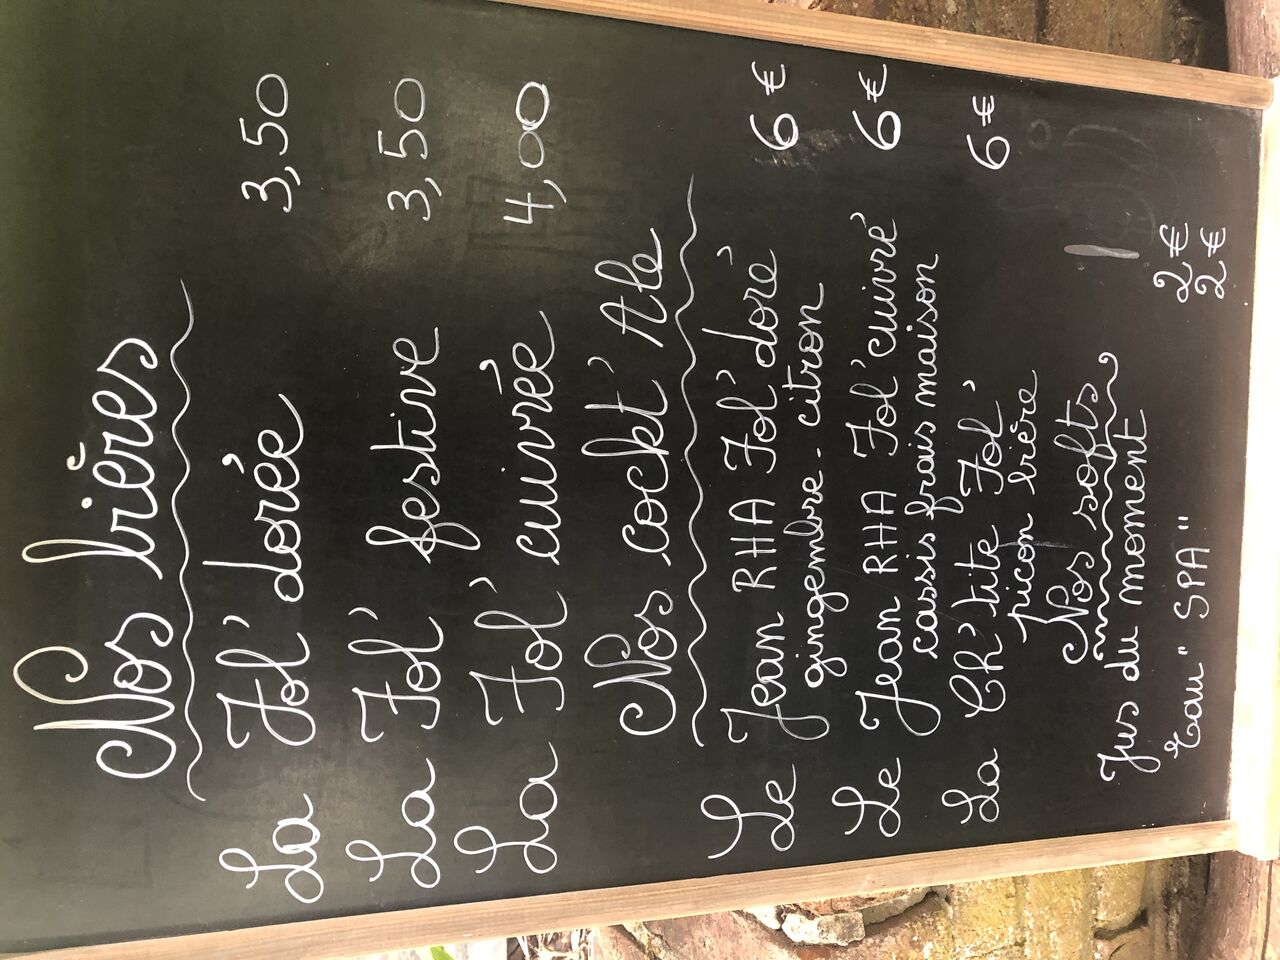 Nos bières
La Fol' dorée 3,50
La Fol' festive 3,50
La Fol' cuivrée 4,00
Nos cockt' Ale
Le Jean RHA Fol' doré 6€
gingembre - citron
Le Jean RHA Fol' cuivré 6€
cassis frais maison
La Ch'tite Fol' 6€
picon bière
Nos softs
Jus du moment 2€
Eau "SPA" 2€